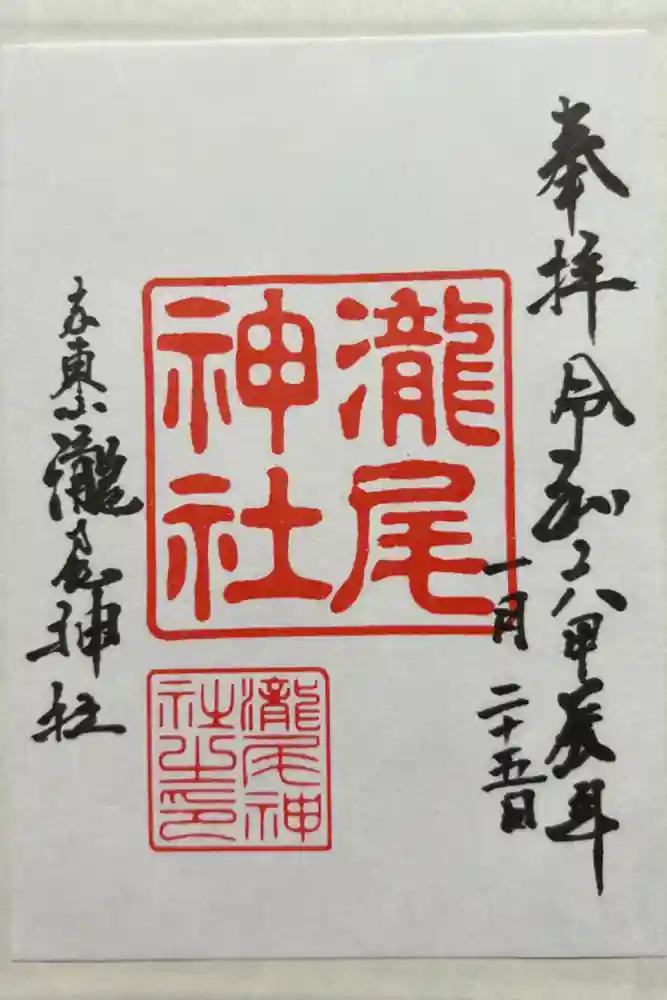 奉拝 令和六甲辰年
一月二十五日
瀧尾
神社
瀧尾神
社之印
京東山瀧尾神社